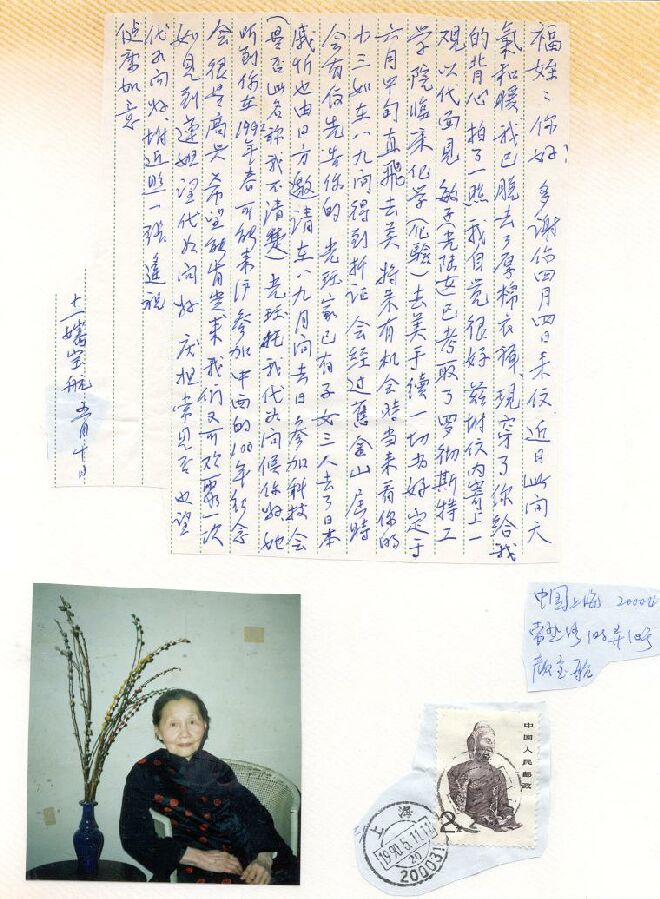 福姪：你好！多谢你四月四日来信，近日此间天
氣和暖，我已脱去了厚棉衣裤，现穿了你给我
的背心拍了一照，我自觉很好，兹附信内寄上一
观以代面见。敏子（尧陆女）已考取了罗彻斯特工
学院临床化学（化验）去美手续一切办好，定于
六月中旬直飛去美，将来有机会时当来看你的
小三如在八九间得到折证，会经过舊金山，届时
会有信先告你的。尧珍家已有子女三人去了日本
戚忻也由日方邀请在八九月间去日参加科技会
（是否此名称我不清楚）尧珍托我代她问候你好，她
听到你在1992年春可能来沪参加中西的100年纪念
会很是高兴，希望能肯定来，我们又可欢聚一次
如见到 姐望代为问好， 常见否也望
代为问好，附近照一张，遥祝
健康如意
十一嬸宝航 五月十日
中国上海 2000
常 路 108弄10号
宝航
中国人民邮政
2
上海
1990.5.11.
20
200031